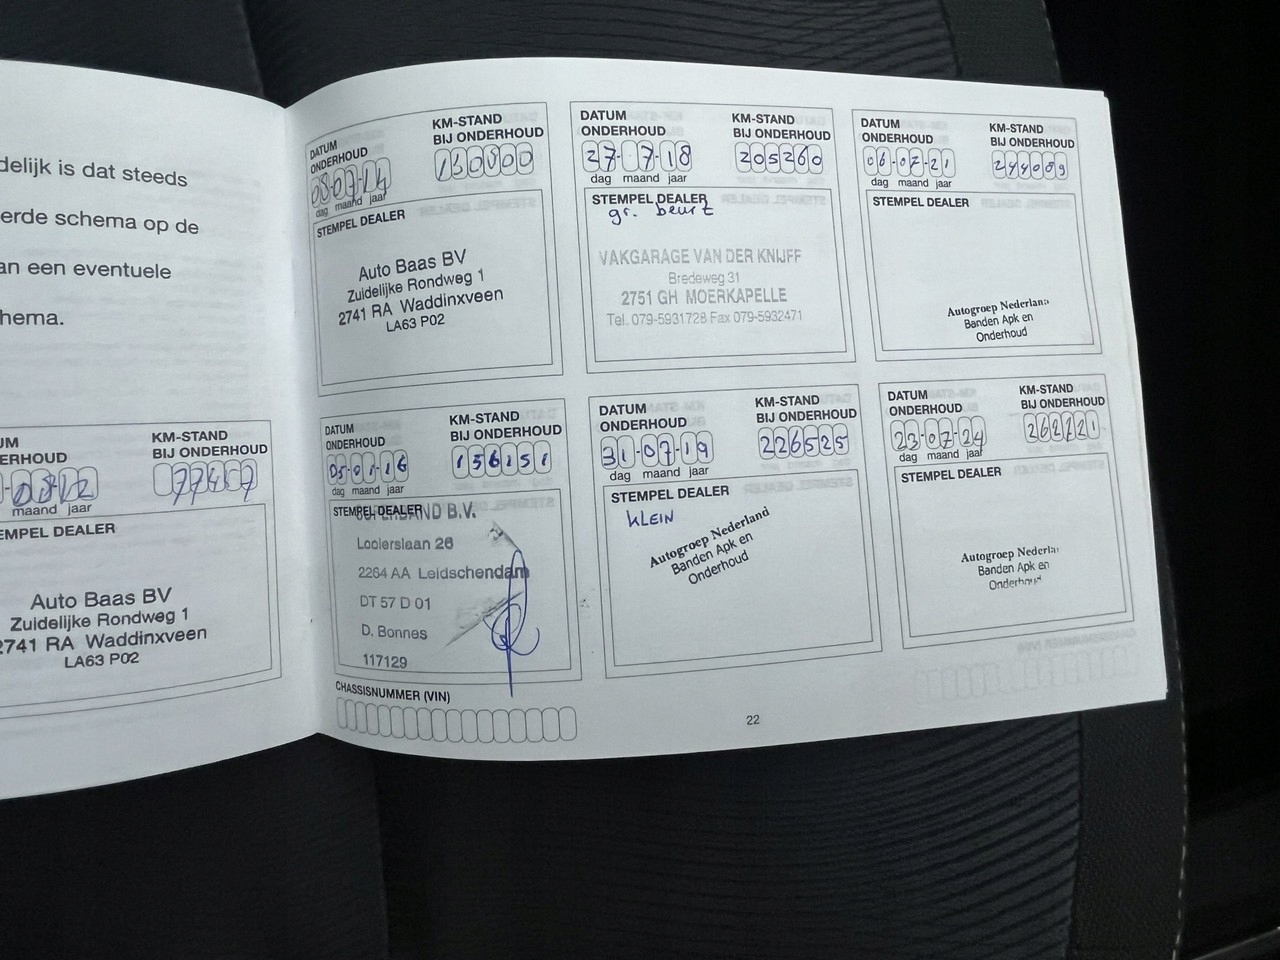 delijk is dat steeds
erde schema op de
an een eventuele
hema.
UM
ERHOUD
KM-STAND
BIJ ONDERHOUD
maand jaar
EMPEL DEALER
Auto Baas BV
Zuidelijke Rondweg 1
2741 RA Waddinxveen
LA63 P02
DATUM
ONDERHOUD
KM-STAND
BIJ ONDERHOUD
08-07-14
130800
dag maand jaar
STEMPEL DEALER
Auto Baas BV
Zuidelijke Rondweg 1
2741 RA Waddinxveen
LA63 P02
DATUM
ONDERHOUD
KM-STAND
BIJ ONDERHOUD
27-7-18
205260
dag maand jaar
STEMPEL DEALER
gr. beurt
VAKGARAGE VAN DER KNIJFF
Bredeweg 31
2751 GH MOERKAPELLE
Tel. 079-5931728 Fax 079-5932471
DATUM
ONDERHOUD
KM-STAND
BIJ ONDERHOUD
06-07-21
244089
dag maand jaar
STEMPEL DEALER
Autogroep Nederland
Banden Apk en
Onderhoud
DATUM
ONDERHOUD
KM-STAND
BIJ ONDERHOUD
05-01-16
156151
dag maand jaar
STEMPEL DEALER
B.V.
Looierslaan 26
2264 AA Leidschendam
DT 57 D 01
D. Bonnes
117129
CHASSISNUMMER (VIN)
DATUM
ONDERHOUD
KM-STAND
BIJ ONDERHOUD
31-07-19
226525
dag maand jaar
STEMPEL DEALER
KLEIN
Autogroep Nederland
Banden Apk en
Onderhoud
DATUM
ONDERHOUD
KM-STAND
BIJ ONDERHOUD
23-07-24
dag maand jaar
STEMPEL DEALER
Autogroep Nederla
Banden Apk en
Onderhoud
22